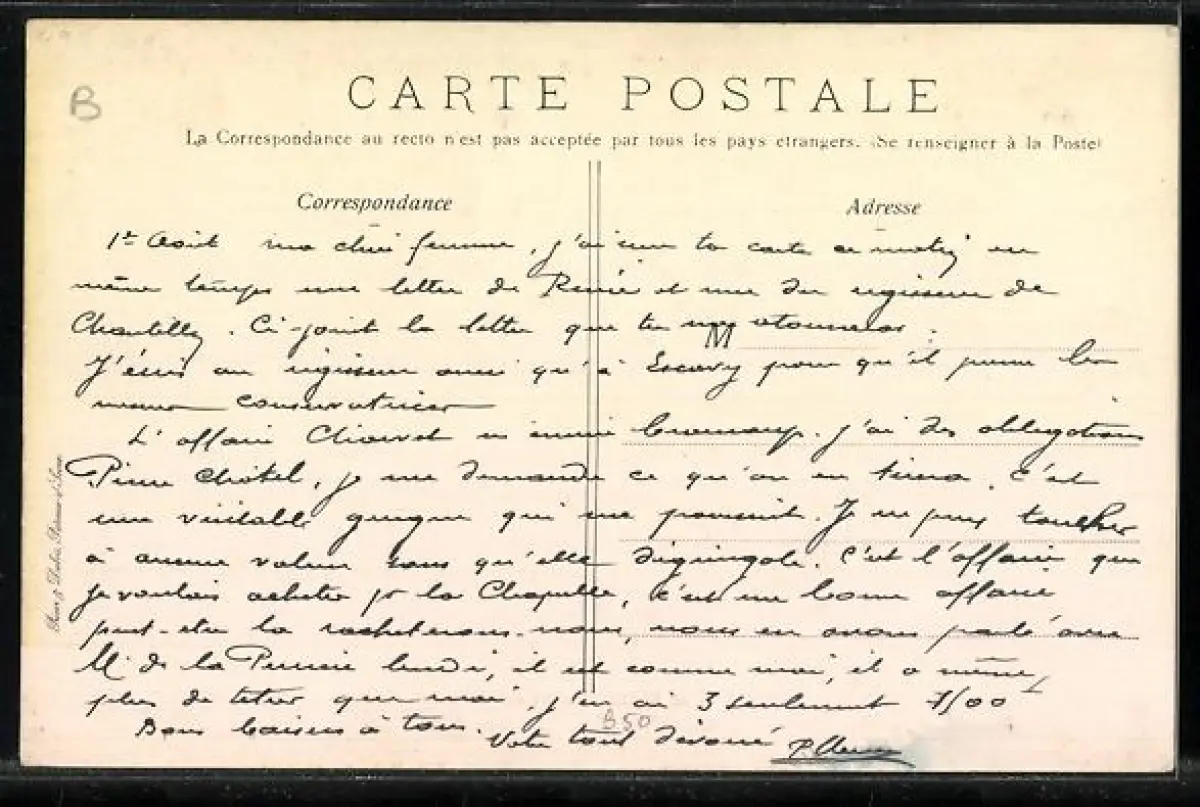 B
CARTE POSTALE
La Correspondance au recto n'est pas acceptée par tous les pays etrangers. (Se renseigner à la Poste)
Correspondance
Adresse
1er Août ma chère femme, j'ai reçu ta carte ce matin en
même temps une lettre de Renée et une du régisseur de
Chantilly. Ci-joint la lettre que tu me retourneras.
M
J'écris au régisseur ainsi qu'à pour qu'il prenne les
mesures conservatrices
L'affaire m'ennuie beaucoup. J'ai des obligations
Pierre Châtel, je me demande ce qu'on en tirera, c'est
une véritable guigne qui me poursuit. Je ne puis toucher
à aucune valeur sans qu'elle dégringole. C'est l'affaire que
je voulais acheter pr la Chapelle, c'est une bonne affaire
peut-être la rachèterons-nous, nous en avons parlé avec
M. de la lundi, il est comme moi, il a même
plus de titres que moi, j'en ai 3 seulement
Bons baisers à tous. Votre tout dévoué
B50